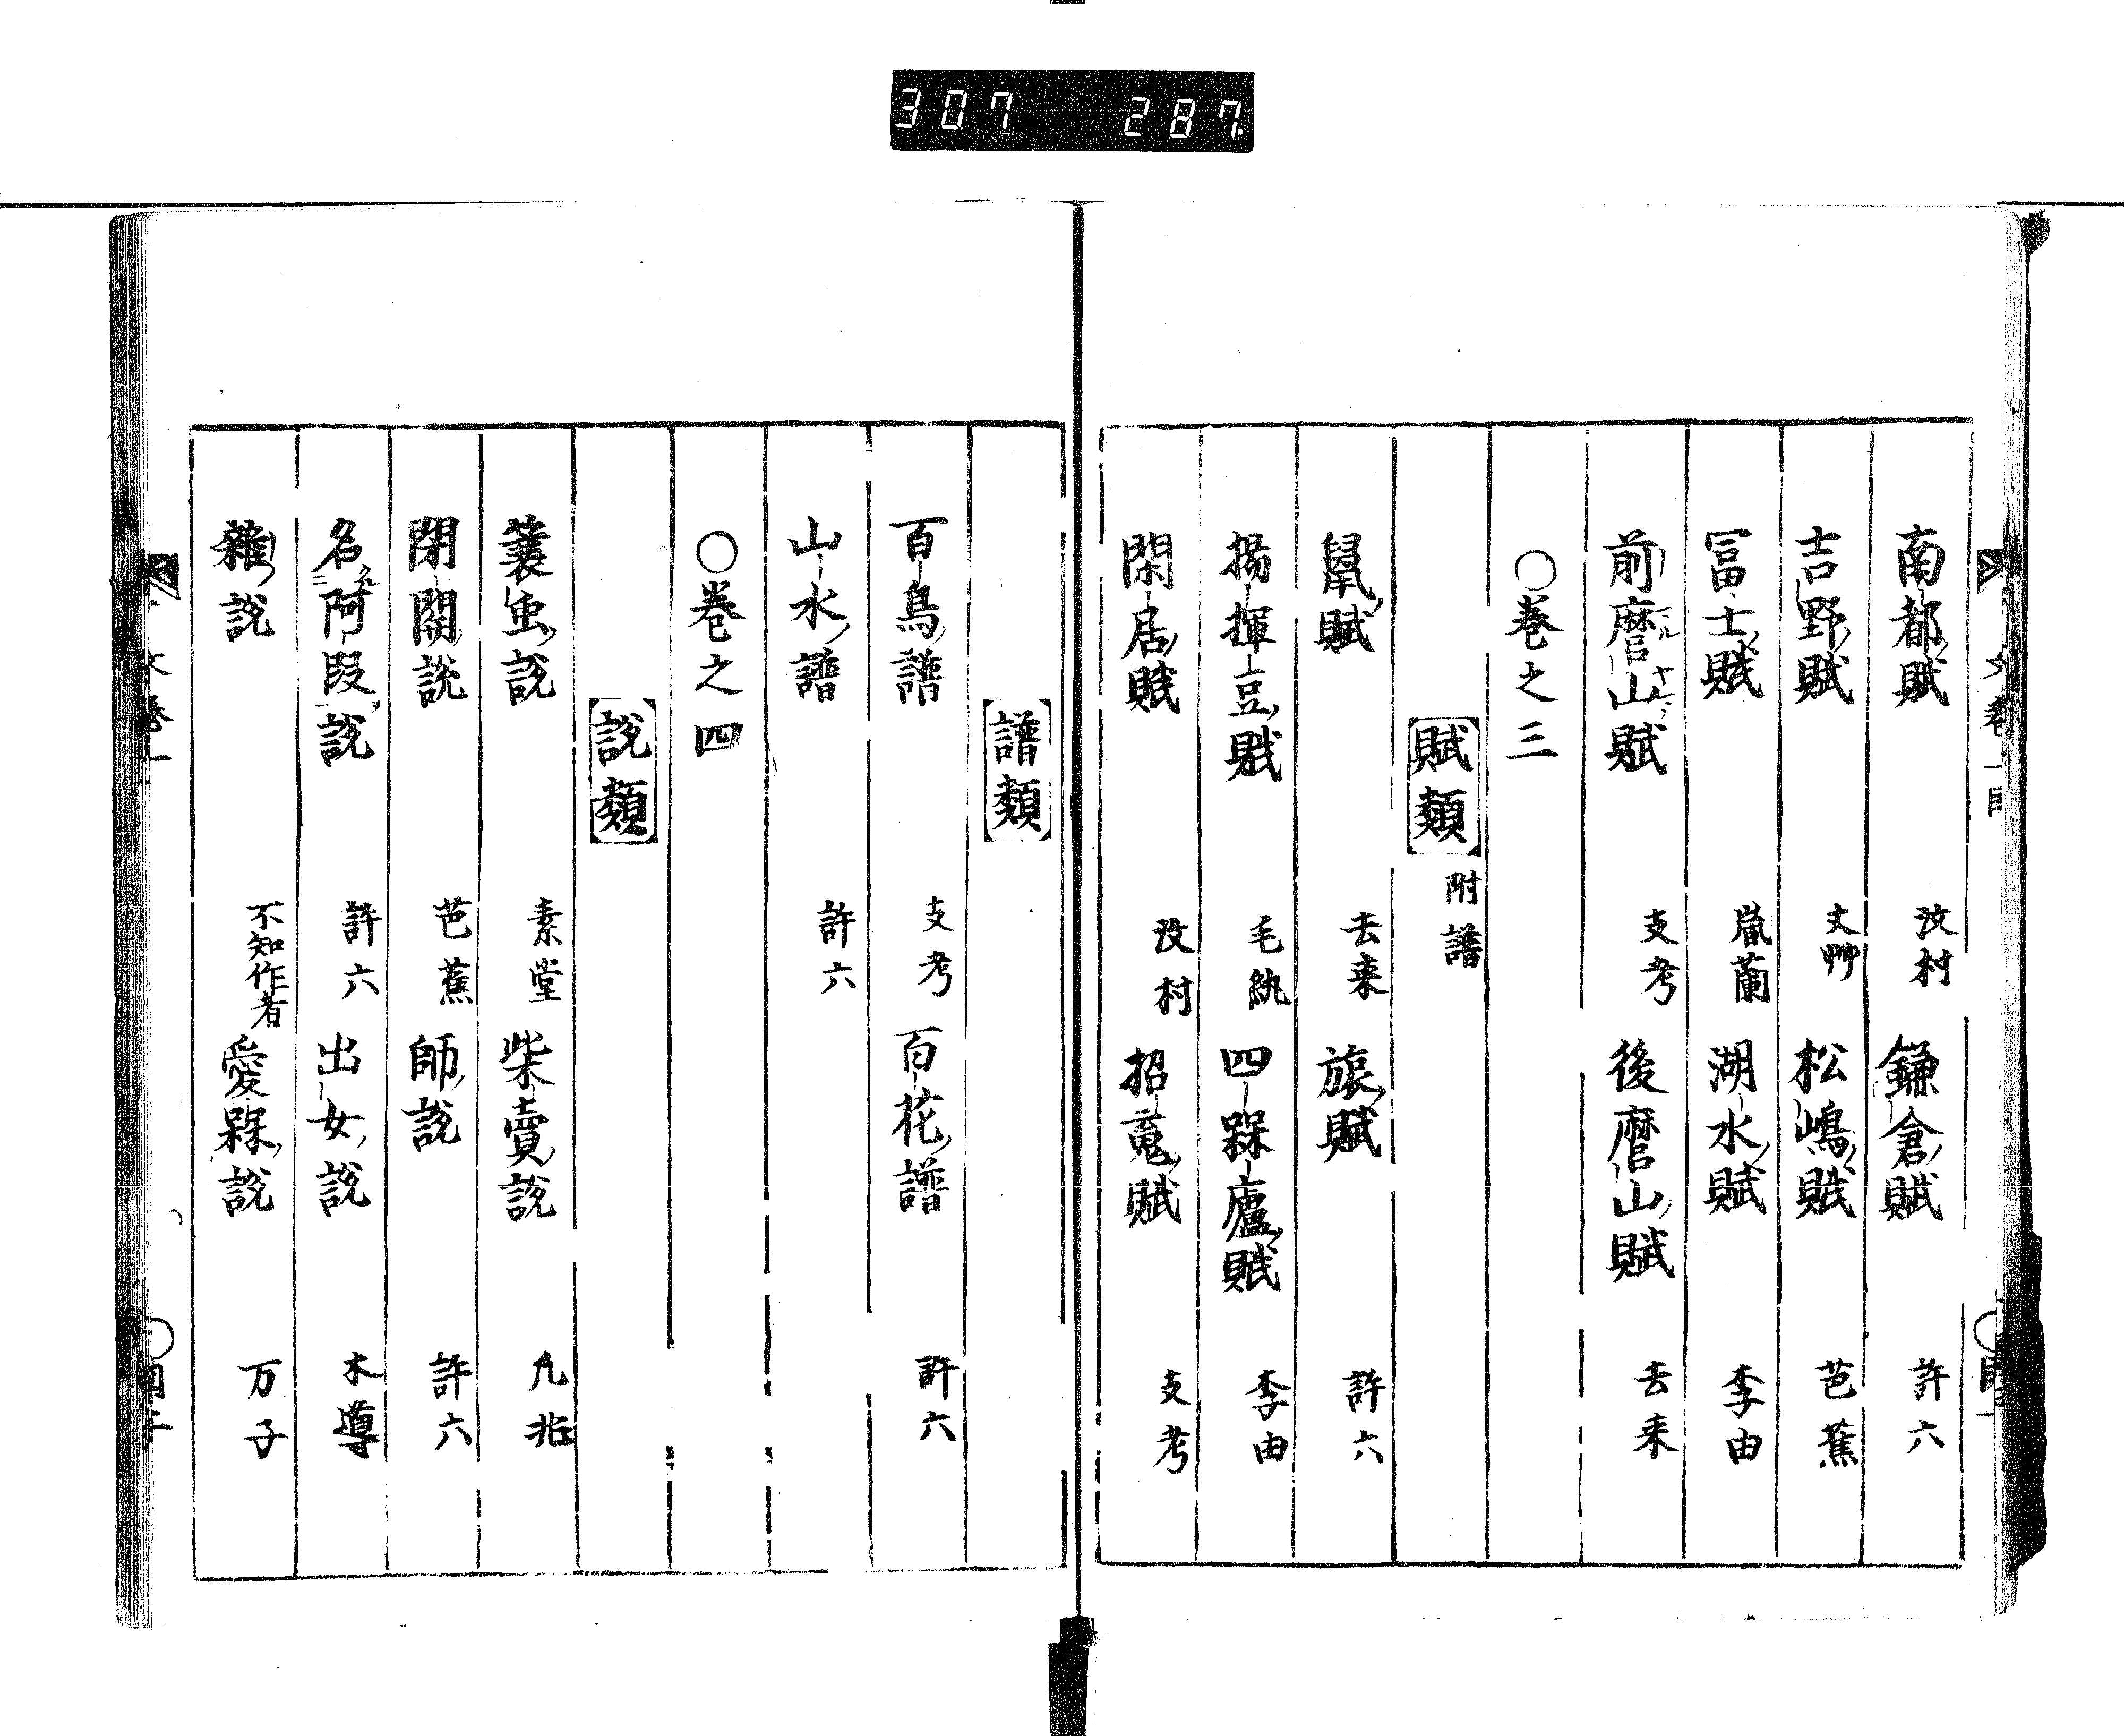 307 287
南都賦 汶村 鎌倉賦 許六
吉野賦 丈艸 松嶋賦 芭蕉
冨士賦 嵐蘭 湖水賦 李由
前麿山賦 支考 後麿山賦 去来
○巻之三
賦類 附譜
鼠賦 去来 旅賦 許六
揚揮豆賦 毛紈 四睬廬賦 李由
閑居賦 汶村 招䰟賦 支考
譜類
百鳥譜 支考 百花譜 許六
山水譜 許六
○巻之四
説類
簔虫説 素堂 柴賣説 凡兆
閉關説 芭蕉 師説 許六
名阿段説 許六 出女説 木導
雜説 不知作者 愛 説 万子